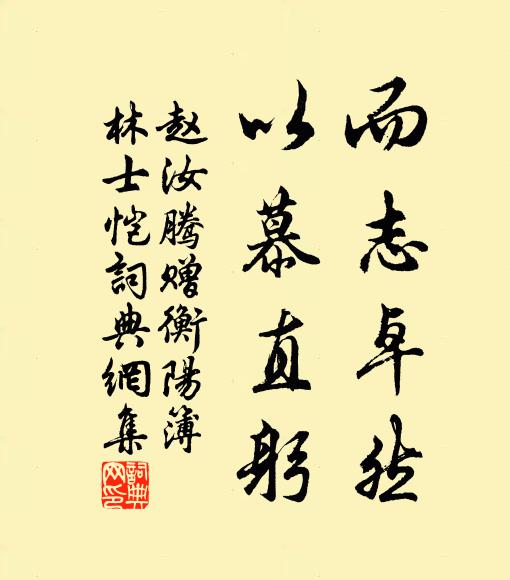 而志卓然
以慕直躬
赵汝腾赠衡陽簿
林士恺詞典網集
詞典网印